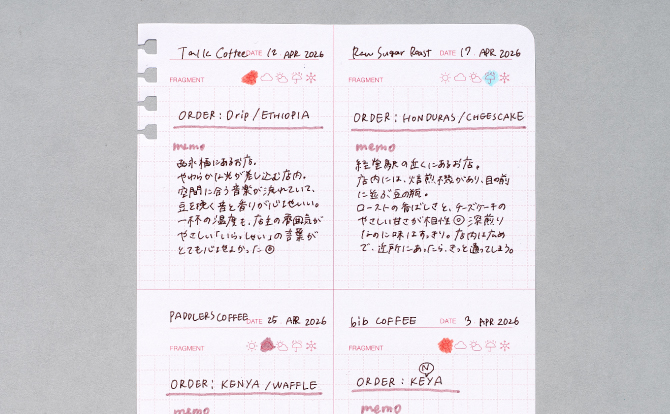 Talk Coffee DATE 12 APR 2026
FRAGMENT
ORDER : Drip / ETHIOPIA
memo
西永福にあるお店。
やわらかい光が差し込む店内。
空間に合う音楽が流れていて、
豆を挽く音と香りが心地いい。
一杯の温度も、店主の雰囲気が
やさしい「いらっしゃい」の言葉が
とても心地よかった
Raw Sugar Roast 17 APR 2026
FRAGMENT
ORDER : HONDURAS / CHEESCAKE
memo
経堂駅の近くにあるお店。
店内には、焙煎機があり、目の前
に並ぶ豆の瓶。
ローストの香ばしさと、チーズケーキの
やさしい甘さが相性◎ 深煎り
なのに味はすっきり。店内は広め
で、近所にあったら、きっと通ってしまう。
PADDLERS COFFEE DATE 25 APR 2026
FRAGMENT
ORDER : KENYA / WAFFLE
memo
bib COFFEE DATE 3 APR 2026
FRAGMENT
N
ORDER : KEYA
memo